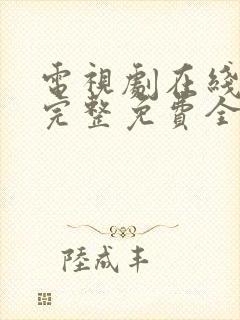 電視劇在綫
完整免費全
陸成丰